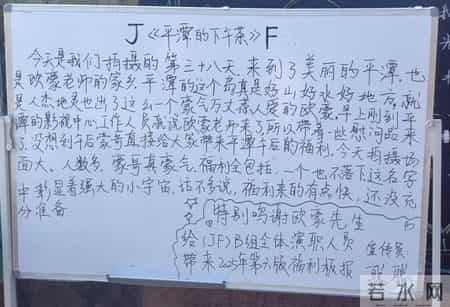 J《平潭的下午茶》F
今天是我们拍摄的第三十八天，来到了美丽的平潭，也
是欧豪老师的家乡，平潭的这个岛真是好山好水好地方，就
是人杰地灵也出了这么一个豪气万丈帅人爱的欧豪，早上刚到平
潭的影视中心工作人员就说欧豪老师来了所以带着一些慰问品来
了，没想到午后豪哥直接给大家带来平潭午后的福利，今天拍摄场
面大，人数多，豪哥真豪气，福利全包括，一个也不落下这名字
中彰显着强大的小宇宙，话不多说，福利来的有点快，还没充
分准备
特别鸣谢欧豪先生
给《JF》B组全体演职人员
带来2025年第 版福利板报
宣传员
若水网